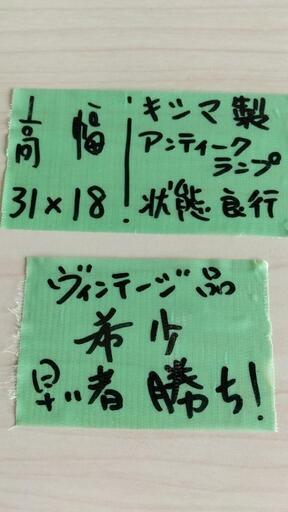 高 幅
31×18
キシマ製
アンティーク
ランプ
状態良行
ヴィンテージ品
希少
早い者勝ち!